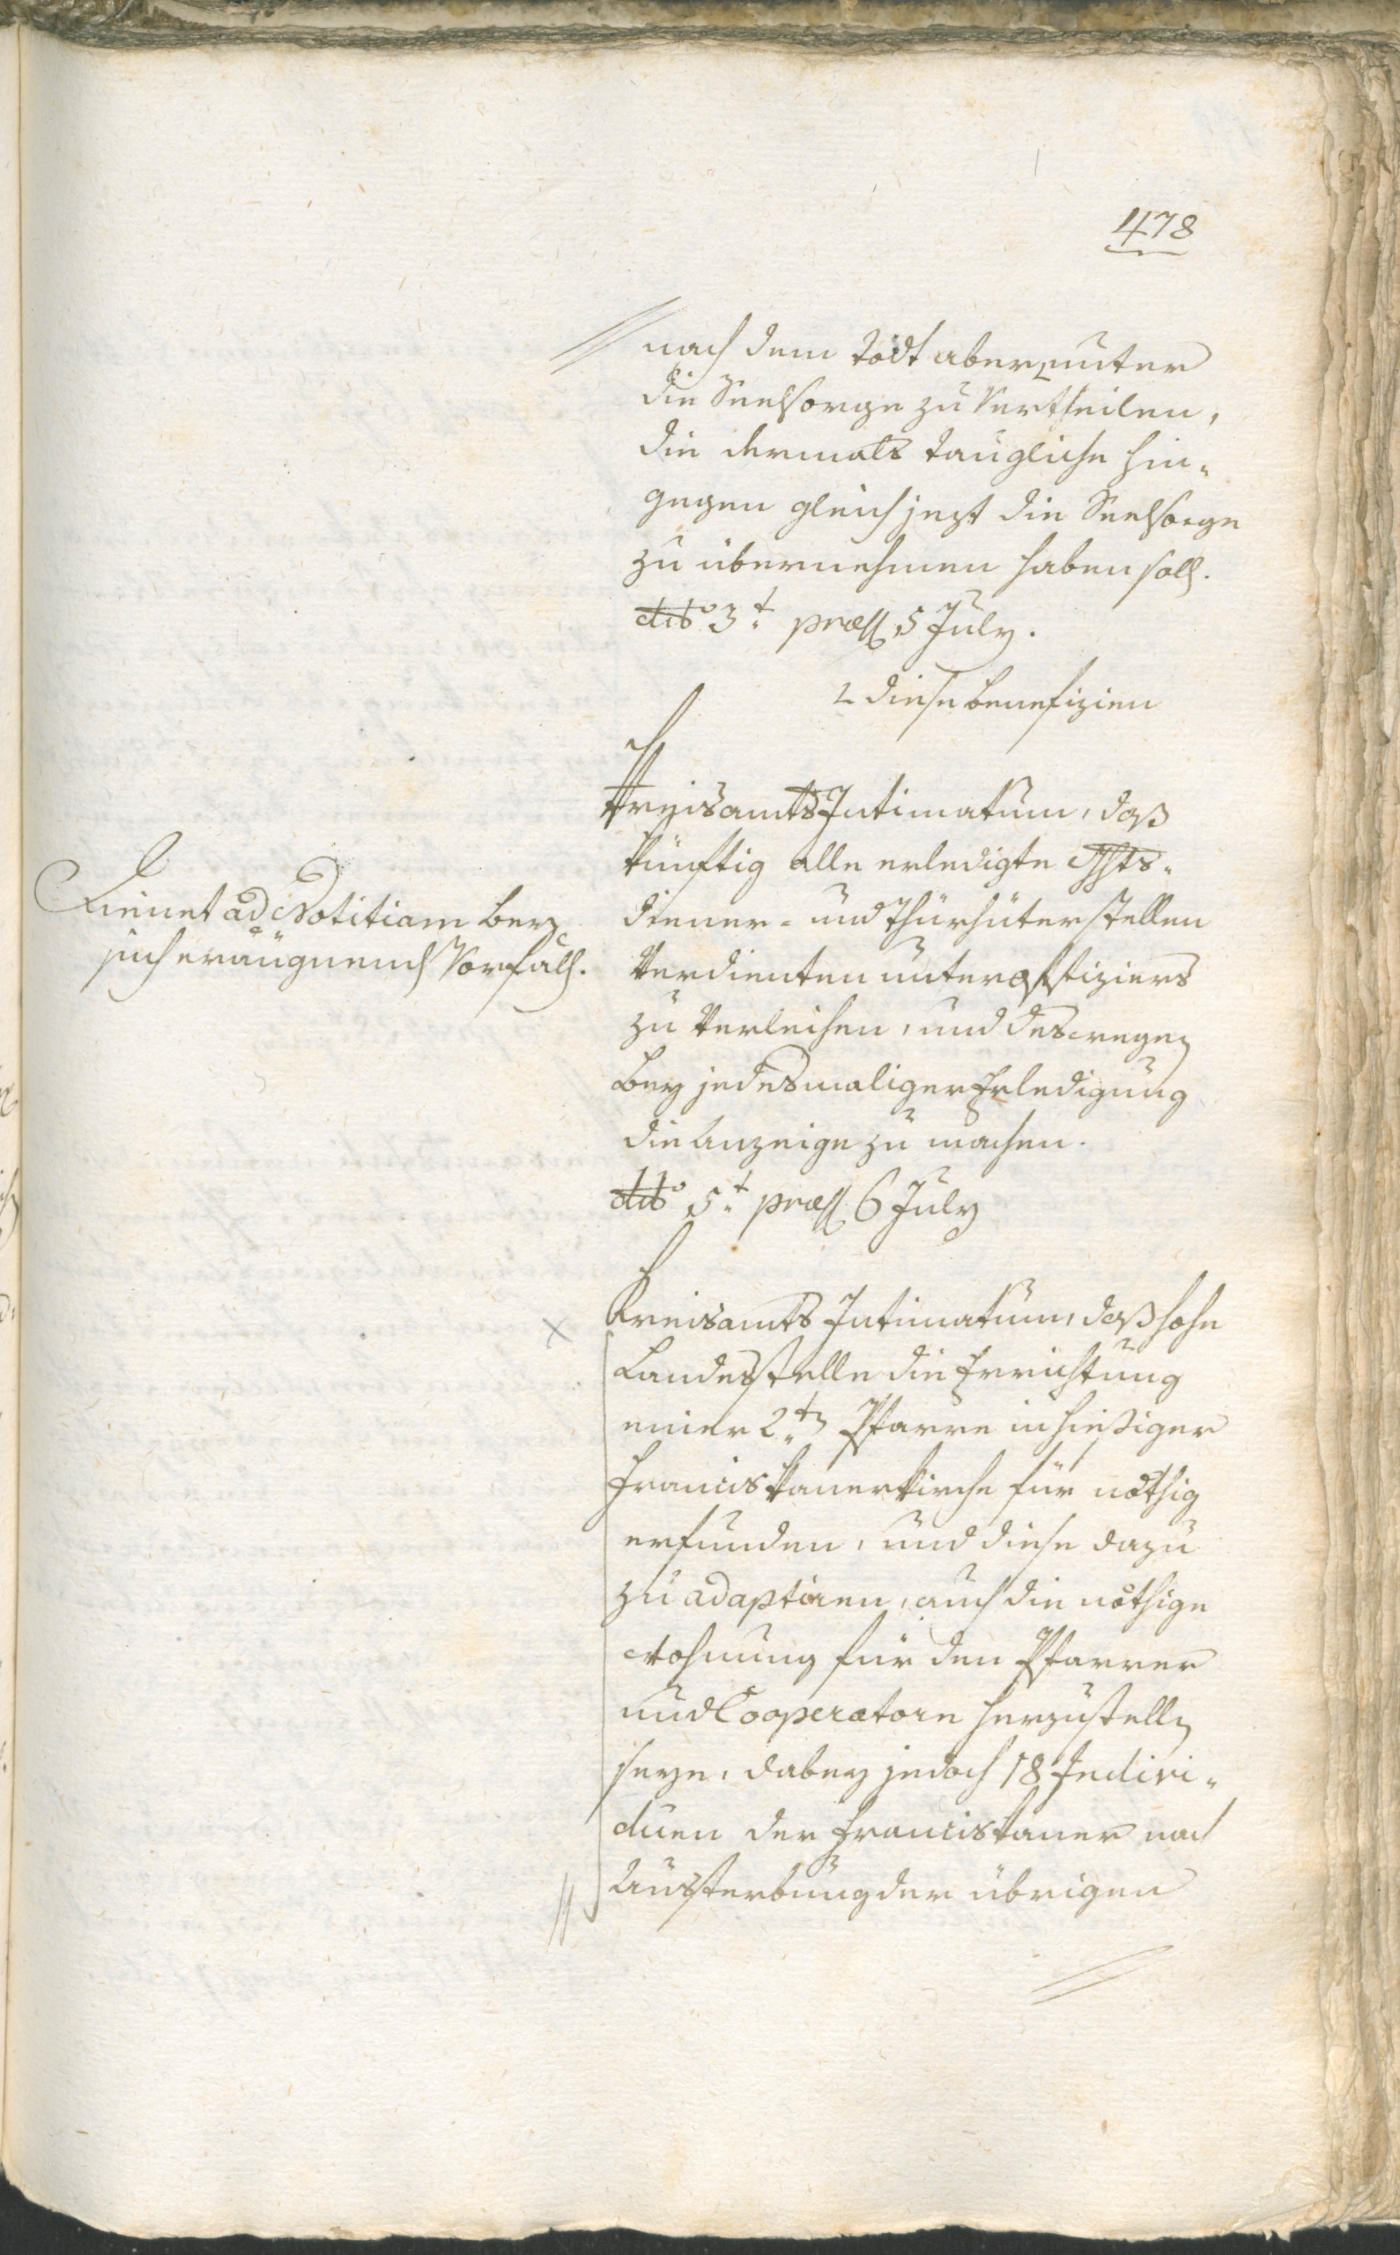 478
nach dem todt aber unter
die Seelsorge zu vertheilen,
die dermals taugliche hin„
gegen gleich jezt die Seelsorge
zu übernehmen haben soll.
dto 3t. præs. 5 July.
diese benefizien
KreisamtsIntimatum, daß
künftig alle erledigte Ghts„
diener- und Thürhüterstellen
verdienten unteroffiziers
zu verleihen, und deswegen
bey jedesmaliger Erledigung
die Anzeige zu machen.
dto 5t. præs. 6 July
Dienet ad Notitiam bey
sich eräugnend Vorfall.
Kreisamts Intimatum, daß hohe
Landesstelle die Errichtung
einer 2tn Pfarre in hießiger
Franciskanerkirche für nöthig
erfunden, und diese dazu
zu adaptiren, auch die nöthige
Wohnung für den Pfarrer
und Cooperatorn herzustellen
seye, dabey jedoch 18 Indivi„
duen der Franciskaner nach
Aussterbung der übrigen